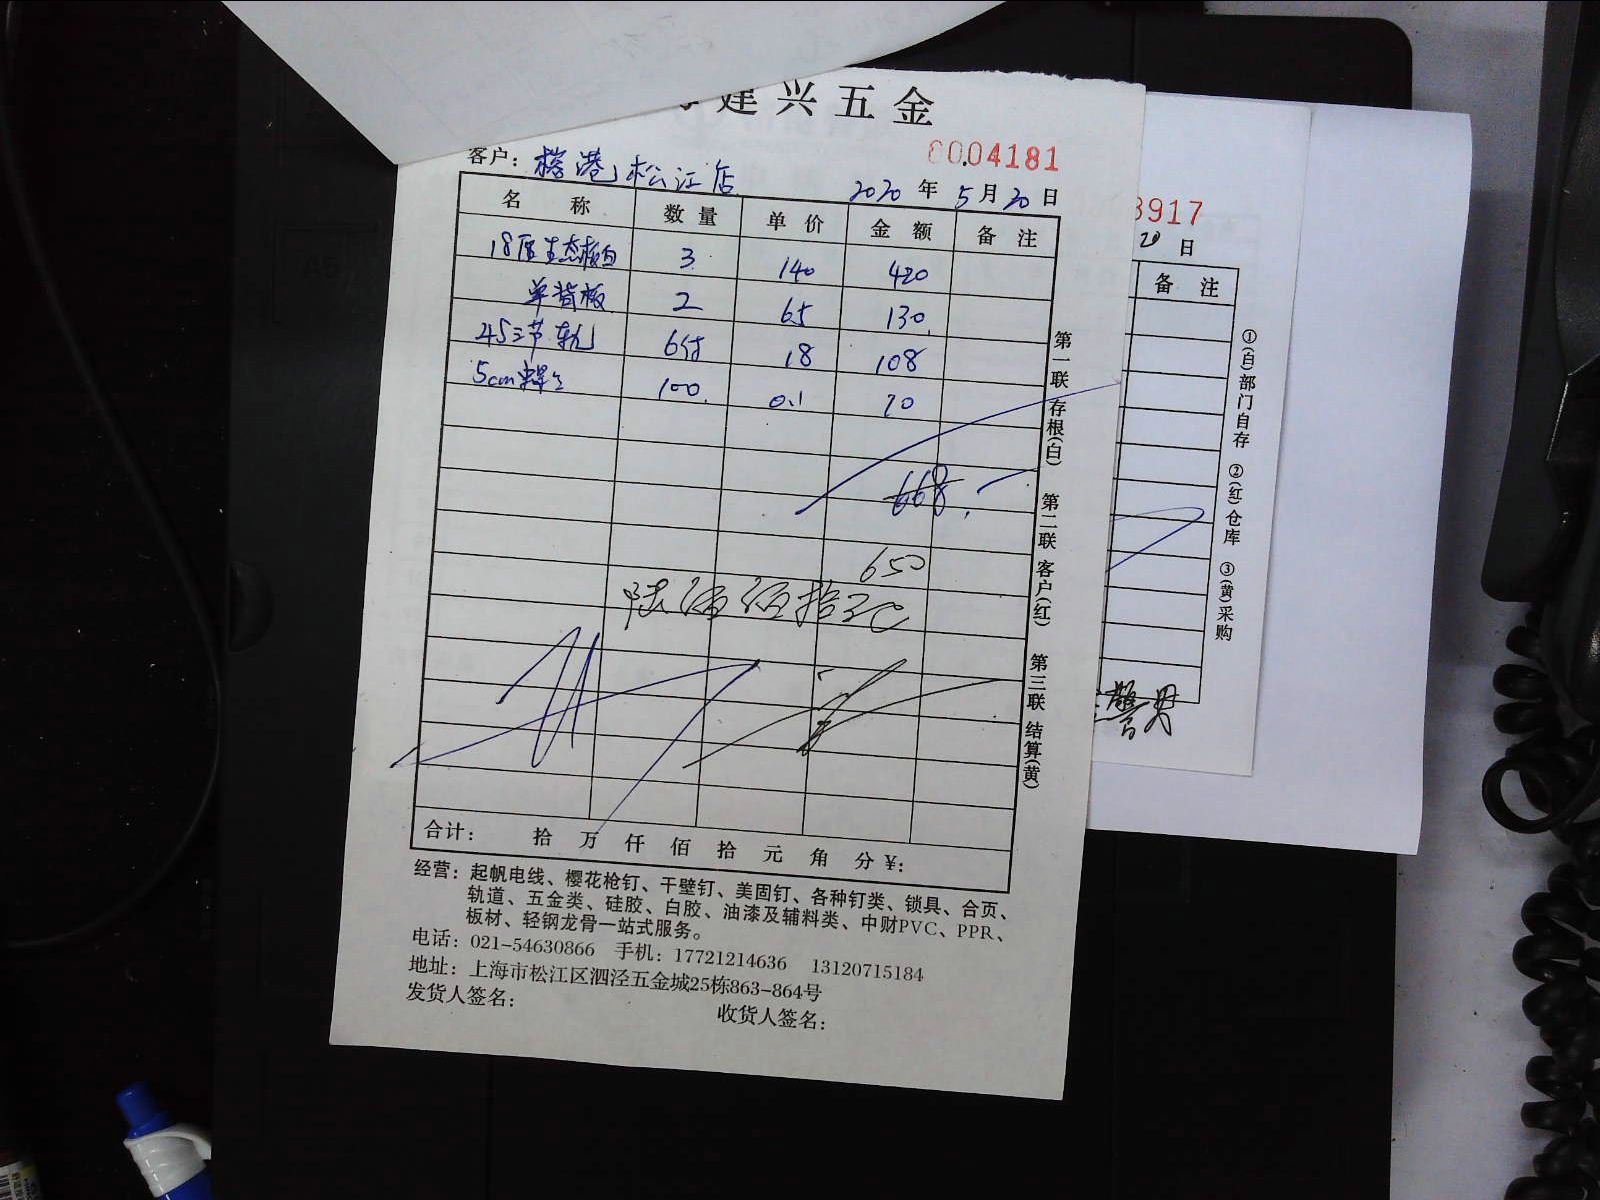 建兴五金
0004181
客户: 榕港松江店
2020 年 5 月 20 日
名 称 数量 单价 金额 备注
18厚生态板白 3 140 420
单背板 2 65 130
45三节轨 6付 18 108
5cm 100 0.1 10
668
650
陆佰伍拾元
合计: 拾 万 仟 佰 拾 元 角 分 ¥:
经营: 起帆电线、樱花枪钉、干壁钉、美固钉、各种钉类、锁具、合页、
轨道、五金类、硅胶、白胶、油漆及辅料类、中财PVC、PPR、
板材、轻钢龙骨一站式服务。
电话: 021-54630866 手机: 17721214636 13120715184
地址: 上海市松江区泗泾五金城25栋863-864号
发货人签名: 收货人签名:
第一联 存根(白) 第二联 客户(红) 第三联 结算(黄)
3917
20 日
备 注
①(白)部门自存 ②(红)仓库 ③(黄)采购